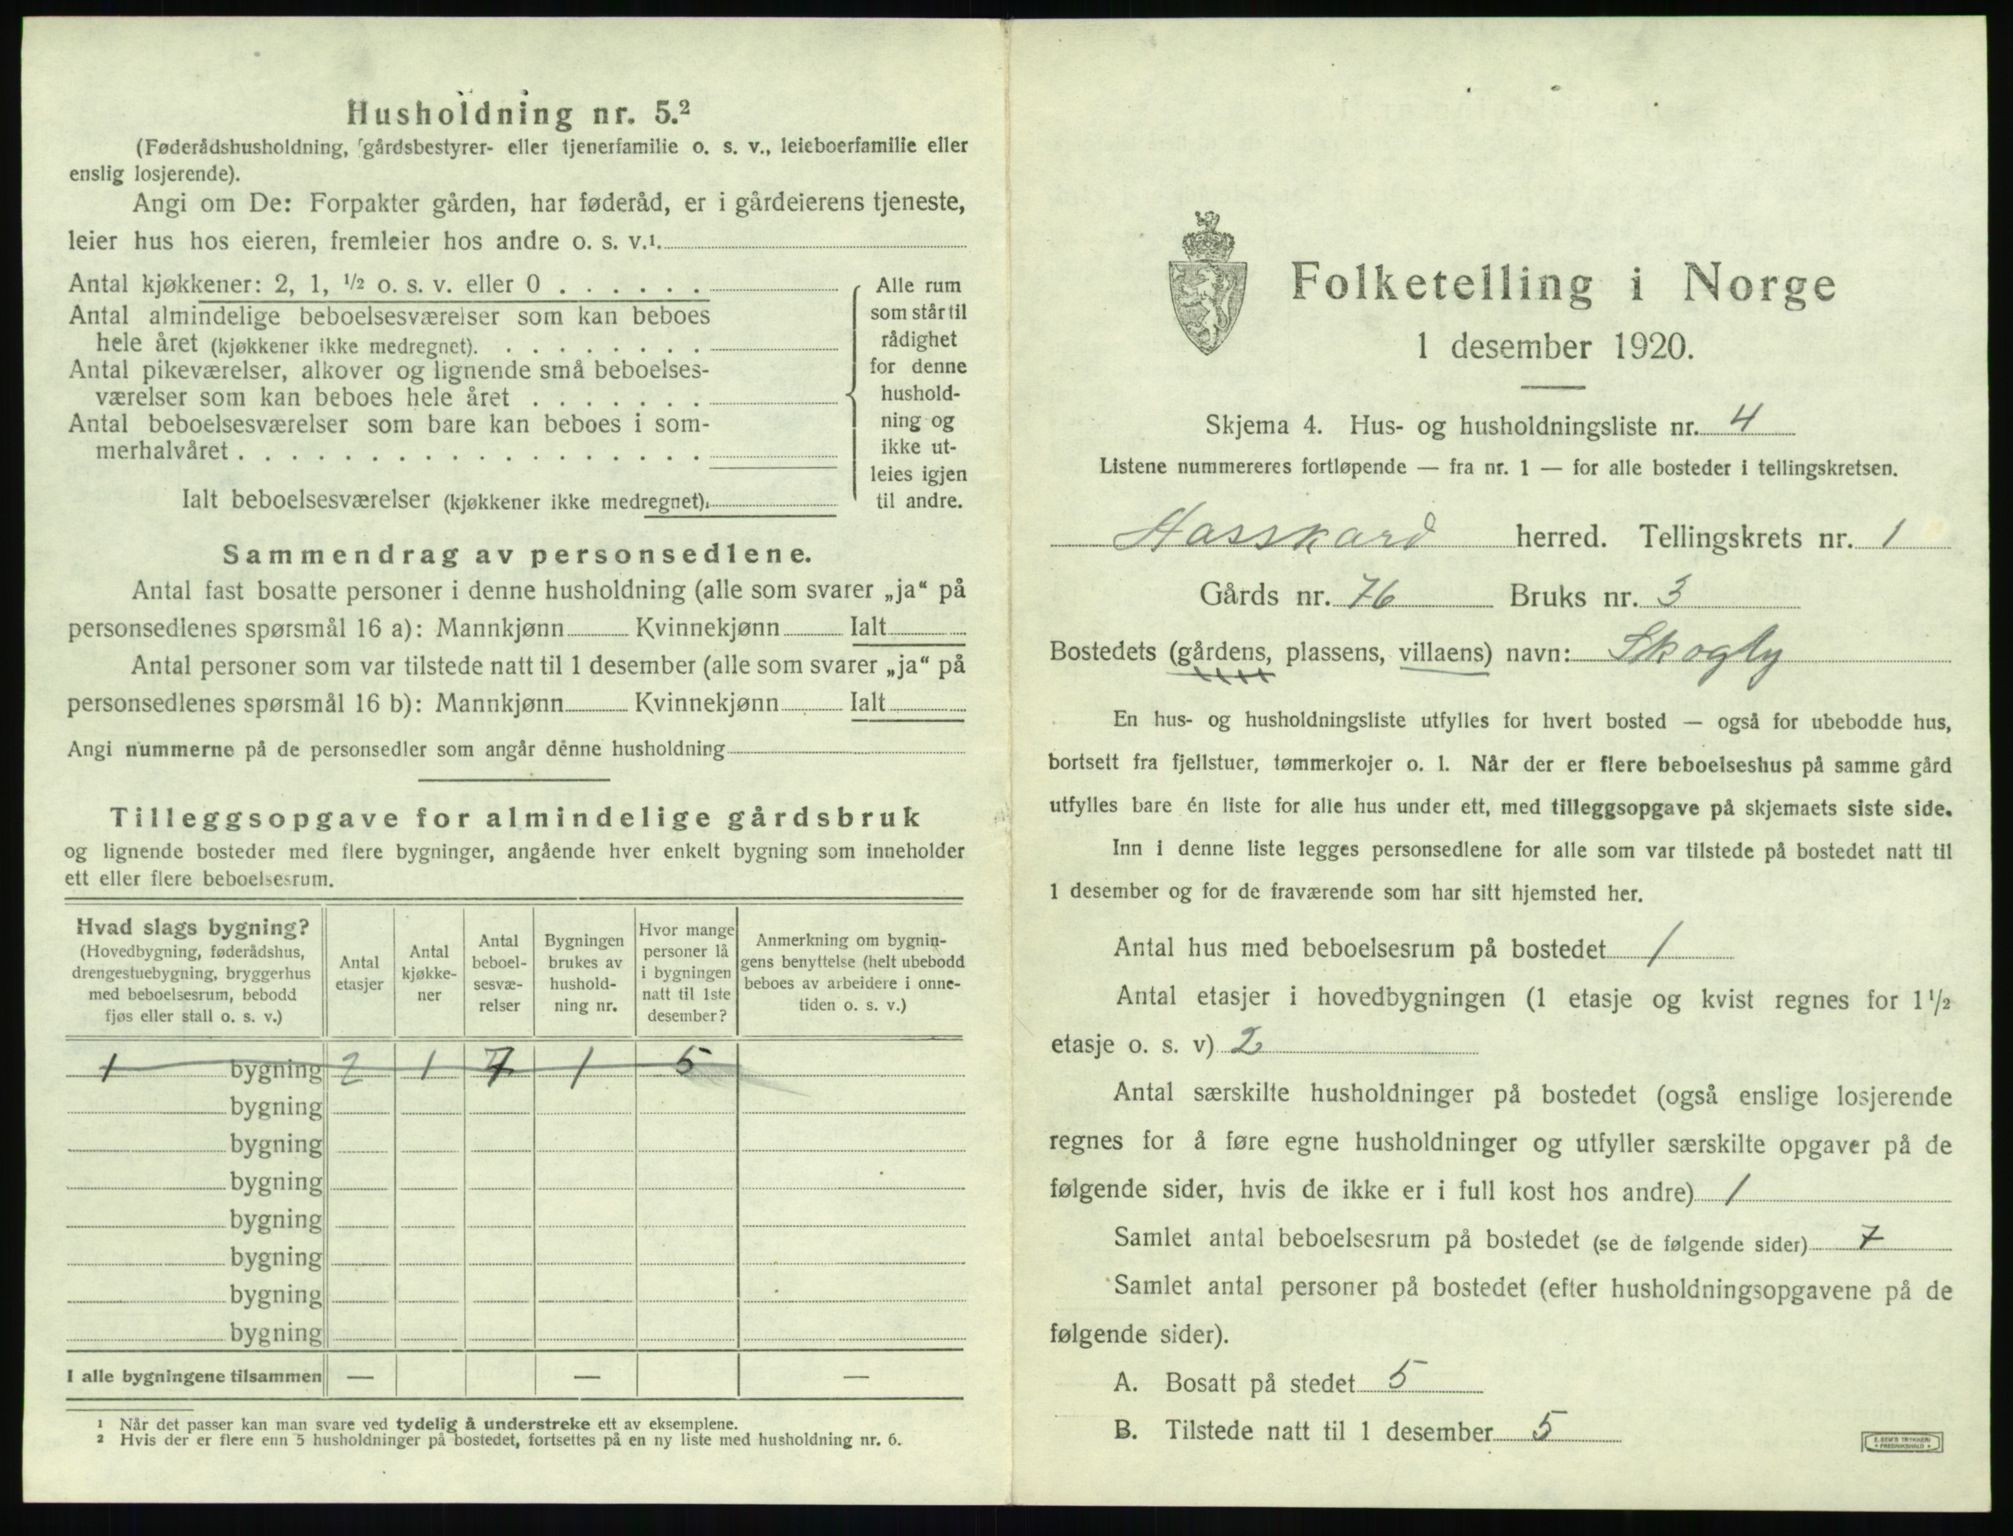 Husholdning nr. 5.²
(Føderådshusholdning, gårdsbestyrer- eller tjenerfamilie o. s. v., leieboerfamilie eller
enslig losjerende).
Angi om De: Forpakter gården, har føderåd, er i gårdeierens tjeneste,
leier hus hos eieren, fremleier hos andre o. s. v.¹.
Antal kjøkkener: 2, 1, ½ o. s. v. eller 0 . . . . . .
Antal almindelige beboelsesværelser som kan beboes
hele året (kjøkkener ikke medregnet). . . . . . . . .
Antal pikeværelser, alkover og lignende små beboelses-
værelser som kan beboes hele året . . . . . . .
Antal beboelsesværelser som bare kan beboes i som-
merhalvåret . . . . . . . . . . . . . . . . . .
Ialt beboelsesværelser (kjøkkener ikke medregnet).
Alle rum
som står til
rådighet
for denne
hushold-
ning og
ikke ut-
leies igjen
til andre.
Sammendrag av personsedlene.
Antal fast bosatte personer i denne husholdning (alle som svarer „ja“ på
personsedlenes spørsmål 16 a): Mannkjønn Kvinnekjønn Ialt
Antal personer som var tilstede natt til 1 desember (alle som svarer „ja“ på
personsedlenes spørsmål 16 b): Mannkjønn Kvinnekjønn Ialt
Angi nummerne på de personsedler som angår denne husholdning
Tilleggsopgave for almindelige gårdsbruk
og lignende bosteder med flere bygninger, angående hver enkelt bygning som inneholder
ett eller flere beboelsesrum.
Hvad slags bygning?
(Hovedbygning, føderådshus,
drengestuebygning, bryggerhus
med beboelsesrum, bebodd
fjøs eller stall o. s. v.)
Antal
etasjer
Antal
kjøkke-
ner
Antal
beboel-
sesvæ-
relser
Bygningen
brukes av
hushold-
ning nr.
Hvor mange
personer lå
i bygningen
natt til 1ste
desember?
Anmerkning om bygnin-
gens benyttelse (helt ubebodd
beboes av arbeidere i onne-
tiden o. s. v.)
1 bygning 2 1 7 1 5
bygning
bygning
bygning
bygning
bygning
bygning
bygning
I alle bygningene tilsammen — — —
¹ Når det passer kan man svare ved tydelig å understreke ett av eksemplene.
² Hvis der er flere enn 5 husholdninger på bostedet, fortsettes på en ny liste med husholdning nr. 6.
Folketelling i Norge
1 desember 1920.
Skjema 4. Hus- og husholdningsliste nr. 4
Listene nummereres fortløpende — fra nr. 1 — for alle bosteder i tellingskretsen.
Hasskard herred. Tellingskrets nr. 1
Gårds nr. 76 Bruks nr. 3
Bostedets (gårdens, plassens, villaens) navn: Skogly
En hus- og husholdningsliste utfylles for hvert bosted — også for ubebodde hus,
bortsett fra fjellstuer, tømmerkojer o. l. Når der er flere beboelseshus på samme gård
utfylles bare én liste for alle hus under ett, med tilleggsopgave på skjemaets siste side.
Inn i denne liste legges personsedlene for alle som var tilstede på bostedet natt til
1 desember og for de fraværende som har sitt hjemsted her.
Antal hus med beboelsesrum på bostedet 1
Antal etasjer i hovedbygningen (1 etasje og kvist regnes for 1 ½
etasje o. s. v) 2
Antal særskilte husholdninger på bostedet (også enslige losjerende
regnes for å føre egne husholdninger og utfyller særskilte opgaver på de
følgende sider, hvis de ikke er i full kost hos andre) 1
Samlet antal beboelsesrum på bostedet (se de følgende sider) 7
Samlet antal personer på bostedet (efter husholdningsopgavene på de
følgende sider).
A. Bosatt på stedet 5
B. Tilstede natt til 1 desember 5
E. SEM'S TRYKKERI
FREDRIKSHALD